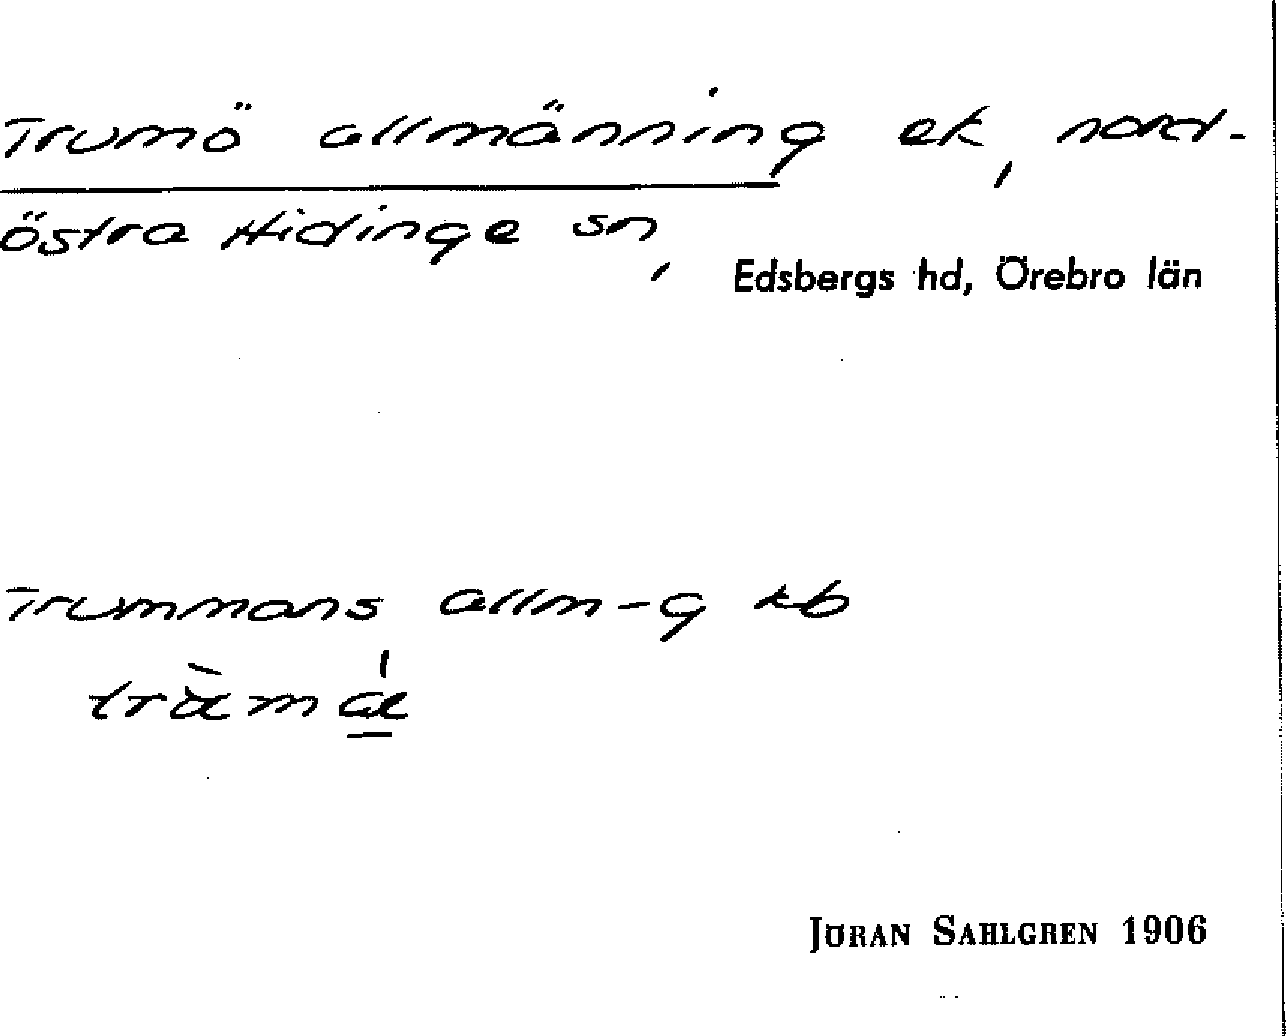 Trumö allmänning ek, nord-
östra Hidinge sn,
Edsbergs hd, Örebro län
Trummans allm-g kb
JÖRAN SAHLGREN 1906